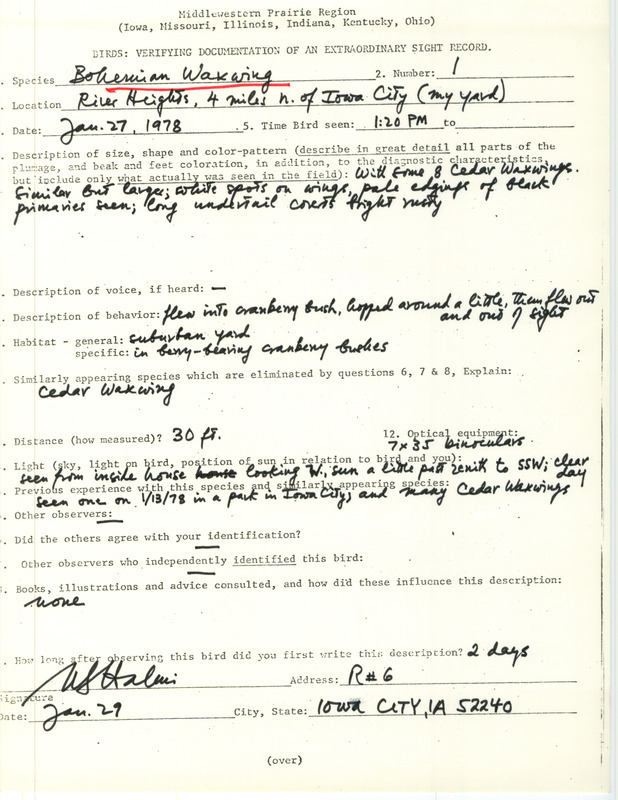 Middlewestern Prairie Region
(Iowa, Missouri, Illinois, Indiana, Kentucky, Ohio)
BIRDS: VERIFYING DOCUMENTATION OF AN EXTRAORDINARY SIGHT RECORD.
. Species Bohemian Waxwing 2. Number: 1
. Location River Heights, 4 miles n. of Iowa City (my yard)
. Date: Jan. 27, 1978 . 5. Time Bird seen: 1:20 PM to
. Description of size, shape and color-pattern (describe in great detail all parts of the
plumage, and beak and feet coloration, in addition, to the diagnostic characteristics,
but include only what actually was seen in the field): With some 8 Cedar Waxwings.
Similar but larger; white spots on wings, pale edgings of black
primaries seen; long undertail coverts bright rusty
. Description of voice, if heard: —
. Description of behavior: flew into cranberry bush, hopped around a little, then flew out
and out of sight
. Habitat - general: suburban yard
specific: in berry-bearing cranberry bushes
. Similarly appearing species which are eliminated by questions 6, 7 & 8, Explain:
Cedar Waxwing
. Distance (how measured)? 30 ft. 12. Optical equipment:
7 x 35 binoculars.
. Light (sky, light on bird, position of sun in relation to bird and you):
seen from inside house house looking W., sun a little past zenith to SSW; clear
day
. Previous experience with this species and similarly appearing species:
seen one on 1/13/78 in a park in Iowa City; and many Cedar Waxwings
. Other observers: —
. Did the others agree with your identification?
—
. Other observers who independently identified this bird:
—
. Books, illustrations and advice consulted, and how did these influence this description:
none
. How long after observing this bird did you first write this description? 2 days
Signature Address: R#6
Date: Jan. 29 City, State: Iowa City, IA 52240
(over)